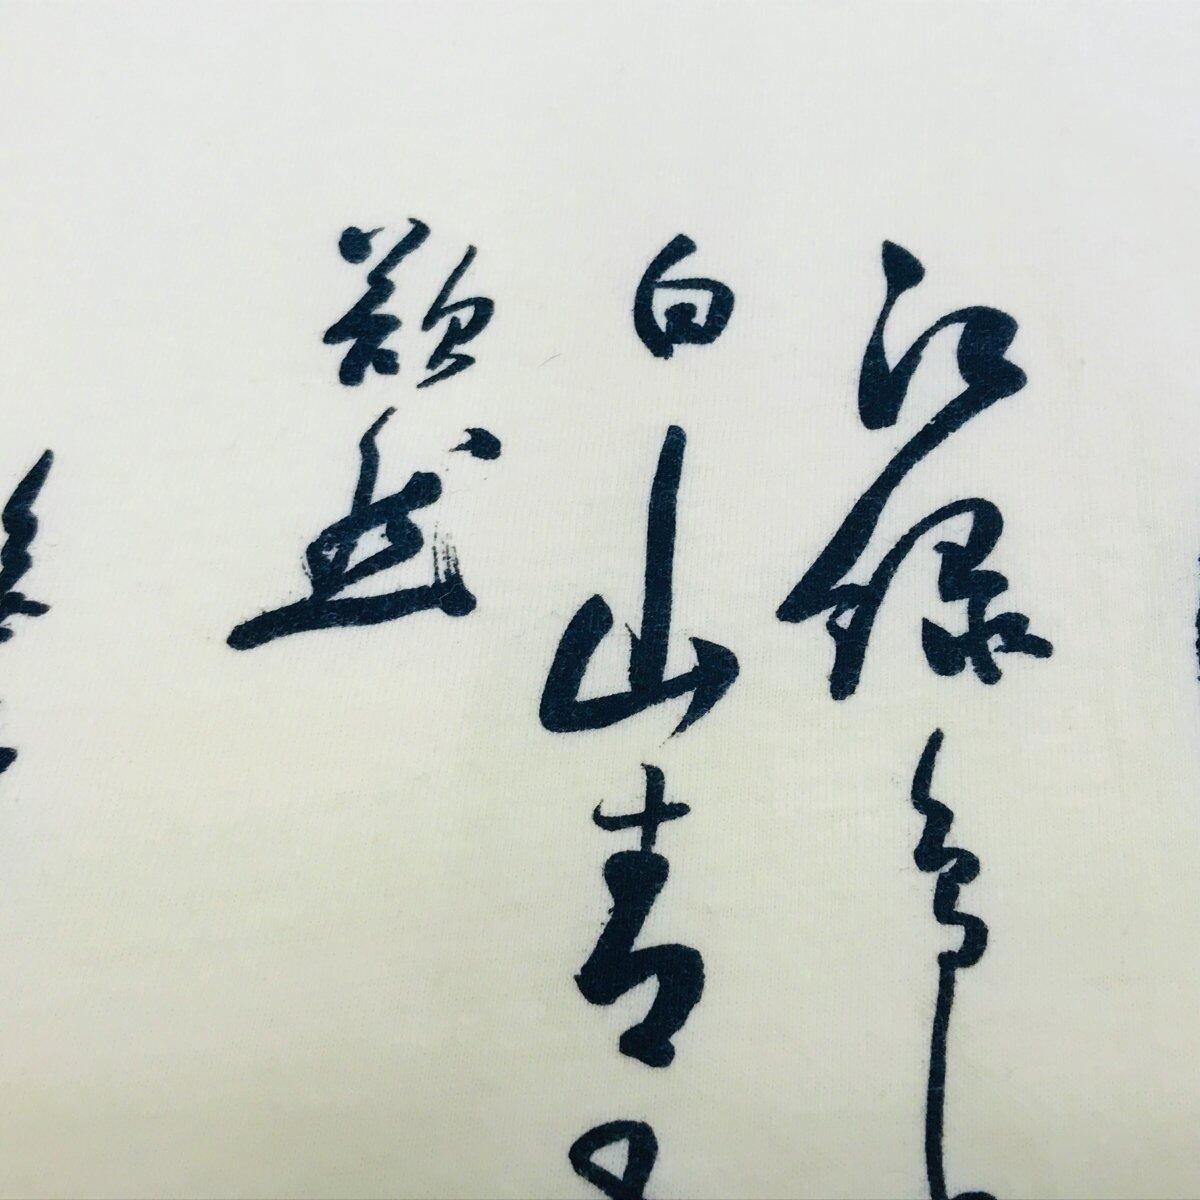 江緑鳥
白山青
欲然